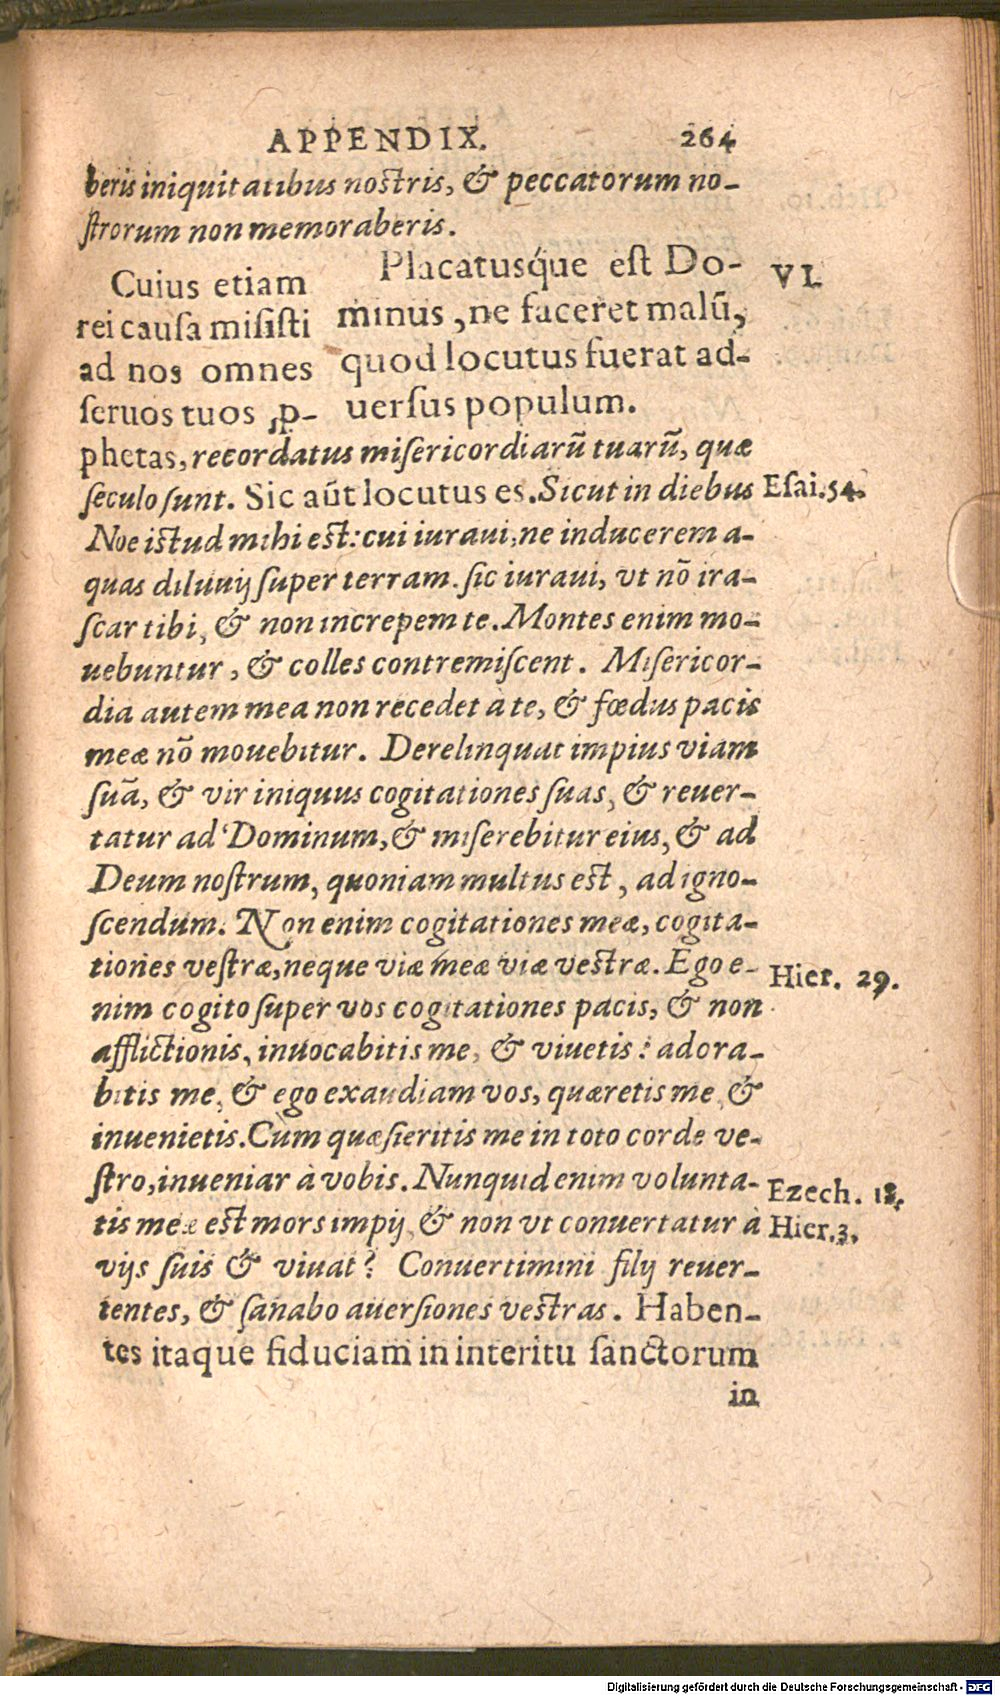 APPENDIX. 264
beris iniquitatibus nostris, & peccatorum no-
ſtrorum non memoraberis.
Placatusq́ue est Do-
minus, ne faceret malũ,
quod locutus fuerat ad-
uersus populum.
VI.
Cuius etiam
rei cauſa misisti
ad nos omnes
ſeruos tuos ꝓ-
phetas, recordatus miſericordiarũ tuarũ, quæ
ſeculo ſunt. Sic aũt locutus es. Sicut in diebus
Esai. 54.
Noe istud mihi est: cui iuraui, ne inducerem a-
quas diluuij ſuper terram. ſic iuraui, vt nõ ira-
ſcar tibi, & non increpem te. Montes enim mo-
uebuntur, & colles contremiſcent. Miſericor-
dia autem mea non recedet à te, & fœdus pacis
meæ nõ mouebitur. Derelinquat impius viam
ſuã, & vir iniquus cogitationes ſuas, & reuer-
tatur ad Dominum, & miſerebitur eius, & ad
Deum noſtrum, quoniam multus est, ad igno-
ſcendum. Non enim cogitationes meæ, cogita-
tiones veſtræ, neque viæ meæ viæ veſtræ. Ego e-
Hier. 29.
nim cogito ſuper vos cogitationes pacis, & non
afflictionis, inuocabitis me, & viuetis: adora-
bitis me, & ego exaudiam vos, quæretis me, &
inuenietis. Cum quæſieritis me in toto corde ve-
ſtro, inueniar à vobis. Nunquid enim volunta-
Ezech. 18.
tis meæ est mors impij, & non vt conuertatur à
Hier. 3.
vijs ſuis & viuat? Conuertimini filij reuer-
tentes, & ſanabo auerſiones veſtras. Haben-
tes itaque fiduciam in interitu ſanctorum
in
Digitalisierung gefördert durch die Deutsche Forschungsgemeinschaft - DFG